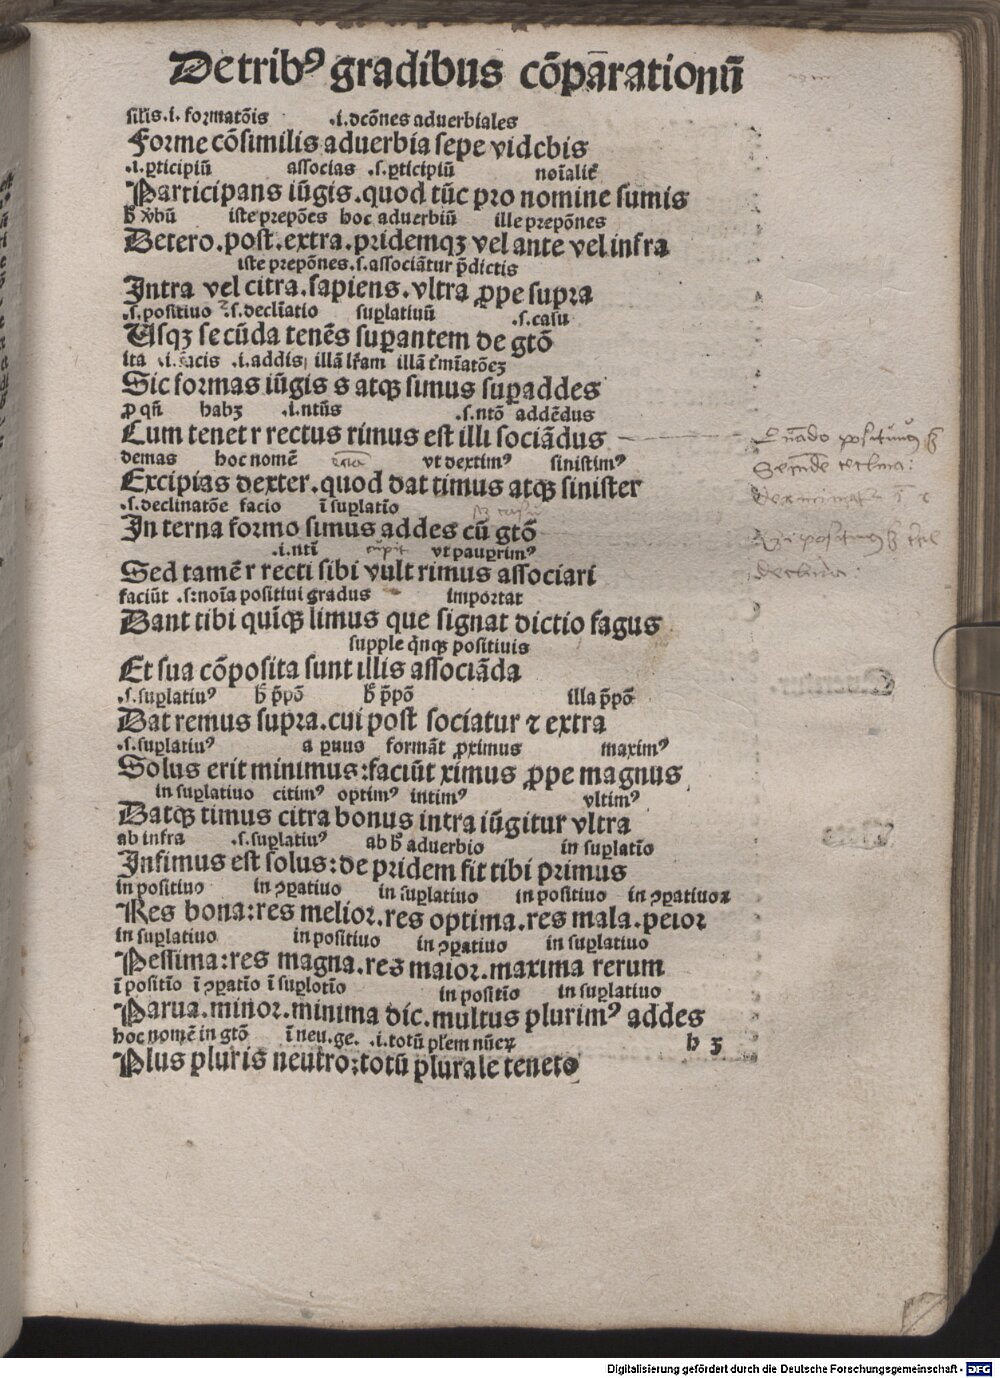 De tribꝰ gradibus cōparationū
silis .i. formatōis .i. dcōnes aduerbiales
Forme cōsimilis aduerbia sepe videbis
.i. ꝑticipiū associas .s. ꝑticipiū noīaliť
Participans iūgis. quod tūc pro nomine sumis
iste prepōes hoc aduerbiū ille prepōnes
Detero. post. extra. pridemqꝫ vel ante vel infra
iste prepōnes .s. associātur p̄dictis
Intra vel citra. sapiens. vltra ꝓpe supra
.s. positiuo .s. declīatio suꝑlatiuū .s. casu
Usqꝫ secūda tenēs suꝑantem de gtō
ita .i. facis .i. addis illā lr̄am illā t̓mīatōeꝫ
Sic formas iūgis s atqꝫ simus suꝑaddes
ꝓ qn̄ habꝫ .i. ntūs .s. ntō addēdus
Cum tenet r rectus rimus est illi sociādus
demas hoc nomē vt dextimꝰ sinistimꝰ
Excipias dexter. quod dat timus atqꝫ sinister
.s. declinatōe facio ī suꝑlatio
In terna formo simus addes cū gtō
.i. ntī vt pauꝑrimꝰ
Sed tamē r recti sibi vult rimus associari
faciūt .s: noīa positiui gradus importat
Dant tibi quīqꝫ limus que signat dictio fagus
supple qͥnqꝫ positiuis
Et sua cōposita sunt illis associāda
.s. suꝑlatiuꝰ illa p̄pō
Dat remus supra. cui post sociatur ⁊ extra
.s. suꝑlatiuꝰ a ꝑuus formāt ꝓximus maximꝰ
Solus erit minimus: faciūt ximus ꝓpe magnus
in suꝑlatiuo citimꝰ optimꝰ intimꝰ vltimꝰ
Datqꝫ timus citra bonus intra iūgitur vltra
ab infra .s. suꝑlatiuꝰ ab aduerbio in suꝑlatīo
Infimus est solus: de pridem fit tibi primus
in positiuo in ꝯꝑatiuo in suꝑlatiuo in positiuo in ꝯꝑatiuo
Res bona: res melior. res optima. res mala. peior
in suꝑlatiuo in positiuo in ꝯꝑatiuo in suꝑlatiuo
Pessima: res magna. res maior. maxima rerum
ī positīo ī ꝯꝑatīo ī suꝑlotīo in positīo in suꝑlatiuo
Parua. minor. minima dic. multus plurimꝰ addes
hoc nomē in gtō ī neu. ge. .i. totū
h ꝫ
Plus pluris neutro: totū plurale teneto
Digitalisierung gefördert durch die Deutsche Forschungsgemeinschaft - DFG